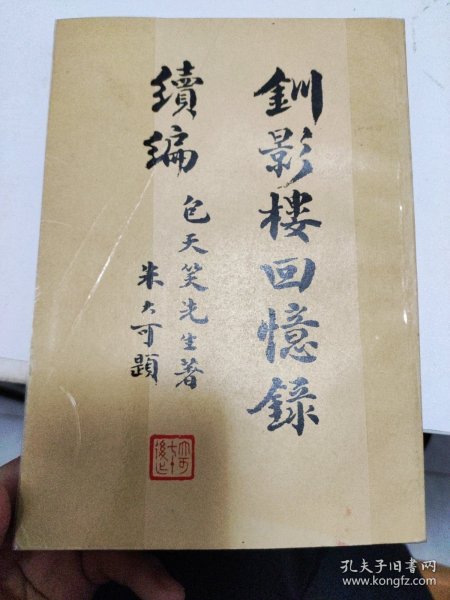 釧影樓回憶錄
續編
包天笑先生著
朱大可題
大可七十後作
孔夫子旧书网
www.kongfz.com